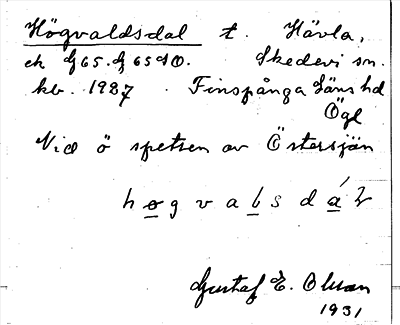 Högvaldsdal t. Hävla,
ek G 65. g 65 d O. Skedevi sn.
kb. 1937 Finspånga läns hd
Ögl
Vid ö spetsen av Östersjön
Gustaf E. Olsson
1931